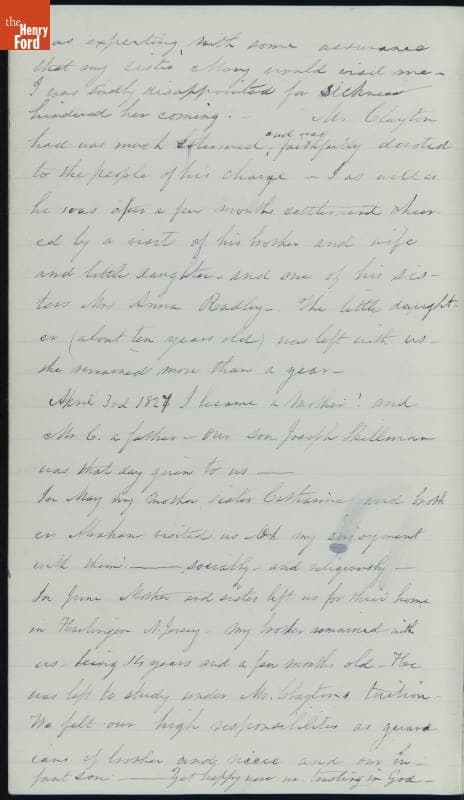 the
Henry
Ford
was expecting with some assurance
that my sister Mary would visit me –
I was sadly disappointed for sickness
hindered her coming. – Mr Clayton
had was much esteemed and was faithfully devoted
to the people of his charge – I as well as
he was after a few months settlement cheer
ed by a visit of his brother and wife
and little daughter – and one of his sis-
ters Mrs Anna Radley. The little daught-
er (about ten years old) was left with us –
she remained more than a year –
April 3rd 1827 I became a Mother! and
Mr C. a father – our son Joseph Skillman
was that day given to us —
In May my mother sister Catharine and broth
er Abraham visited us Oh my enjoyment
with them — socially and religiously –
In June Mother and sister left us for their home
in Harlingen N. Jersey – my brother remained with
us – being 14 years and a few months old – He
was left to study under Mr. Claytons tuition
We felt our high responsibilites as guard
ians of brother and niece and our in-
fant son — Yet happy were we trusting in God –